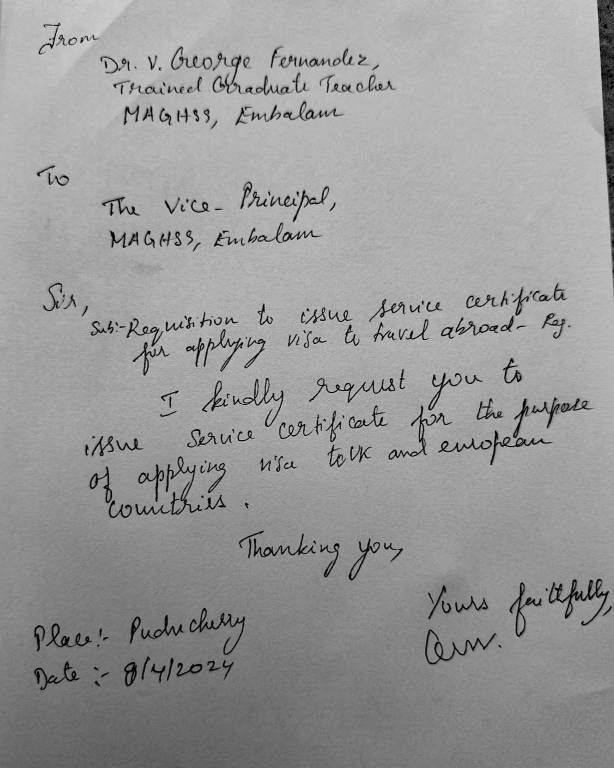 From
Dr. V. George Fernandez,
Trained Graduate Teacher
MAGHSS, Embalam
To
The Vice-Principal,
MAGHSS, Embalam
Sir,
Sub:-Requisition to issue service certificate
for applying visa to travel abroad- Reg.
I kindly request you to
issue service certificate for the purpose
of applying visa to UK and european
countries.
Thanking you,
Yours faithfully,
Place:- Puducherry
Date :- 8/4/2024